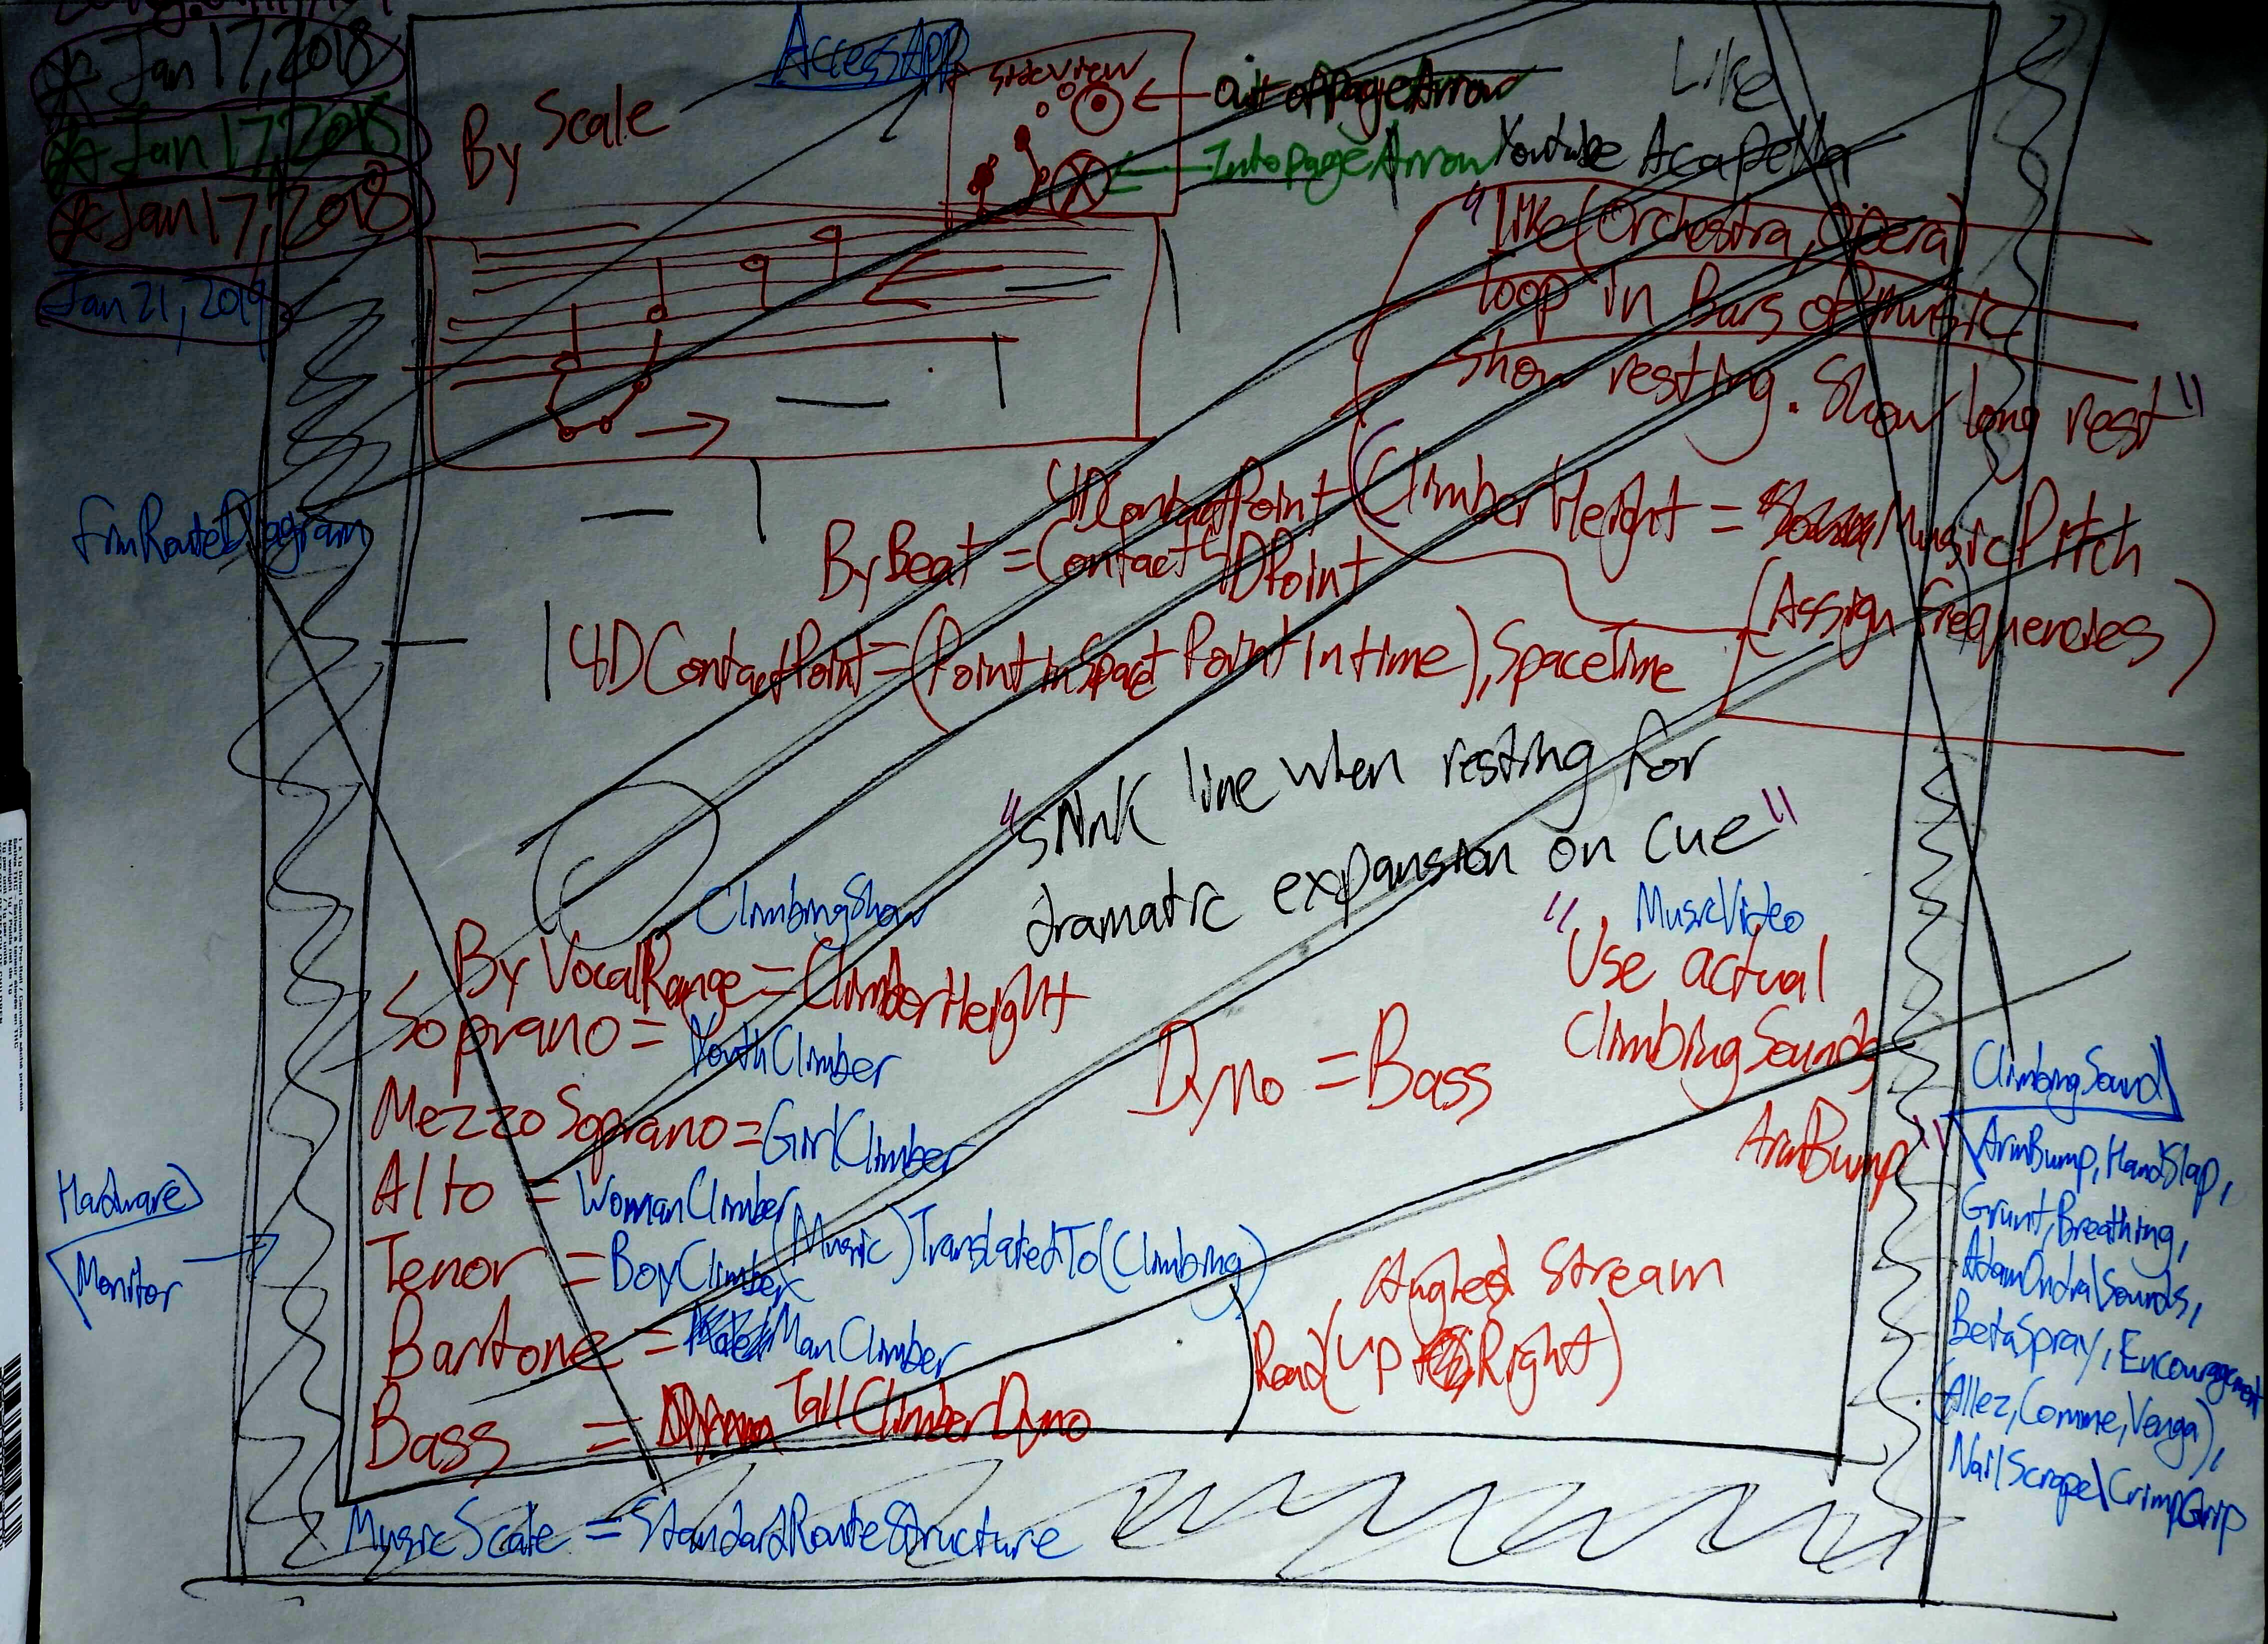 Jan 17, 2018
Jan 17, 2018
Jan 17, 2018
Jan 21, 2019
AccessApp
By Scale
sideview
out of PageArrow
Into page Arrow
Like
Youtube Acapella
"Like (Orchestra, Opera)
loop in Bars of music
show resting. Show long rest"
FrmRouteDiagram
4DContactPoint
(ClimberHeight = MusicPitch
ByBeat = Contact4DPoint
(Assign frequencies)
4DContactPoint = (PointInSpace PointIntime), SpaceTime
line when resting for
dramatic expansion on cue"
ClimbingShow
MusicVideo
By VocalRange = ClimberHeight
"Use actual
ClimbingSounds
ArmBump"
Soprano = YouthClimber
Mezzo Soprano = GirlClimber
Alto = WomanClimber
(Music)TranslatedTo(Climbing)
Tenor = BoyClimber
Baritone = ManClimber
Bass = TallClimberDyno
Dyno = Bass
Angled Stream
Read(Up Right)
Hardware
Monitor
ClimbingSound
ArmBump, HandSlap,
Grunt, Breathing,
AdamOndraSounds,
BetaSpray, Encouragement
(Allez, Comme, Venga),
NailScrape\CrimpGrip
MusicScale = StandardRouteStructure